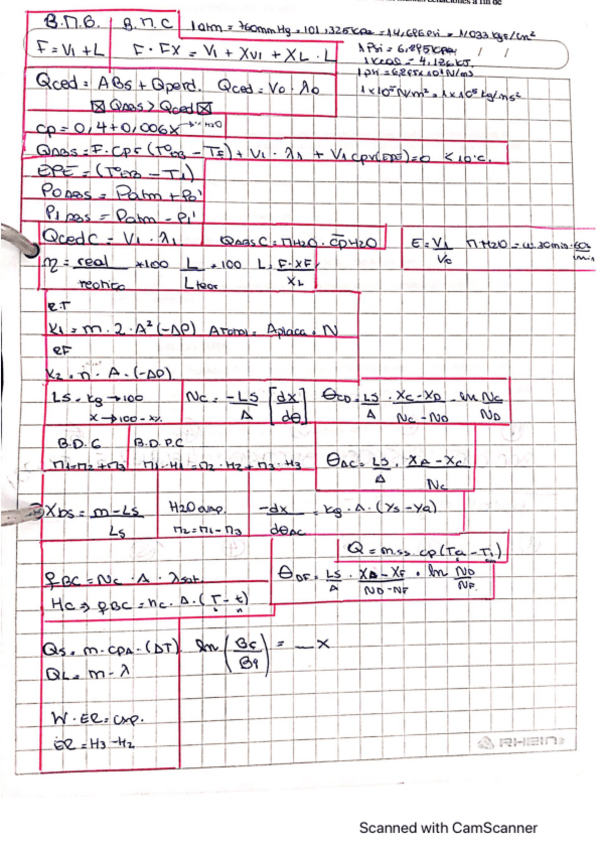 B.M.B. B.M.C 1 atm = 760mmHg = 101,325 KPa = 14,696 Psi = 1,033 kgf/cm²
F = V₁ + L F · FX = V₁ + XV₁ + XL · L 1 Psi = 6,895 KPa
1 Kcal = 4,186 KJ
1 psi = 6,895x10³ N/m²
Qced = ABS + Qperd. Qced = V₀ · λ₀ 1x10⁵ N/m² = 1x10⁵ kg/ms²
Qabs > Qced
CP = 0,4 + 0,006X → % H₂O
Qabs = F · CPF (Teb − TF) + V₁ · λ₁ + V₁ CPV(EPE) = 0 < 10°C.
EPE = (Teb − T₁)
P₀ abs = Patm + P₀'
P₁ abs = Patm − P₁'
QcedC = V₁ · λ₁ QabsC = mH₂O · CPH₂O E = V₁/V₀
η = real/teorico · 100 L/Lteor · 100 L = F·XF/XL
RT
K₁ = m · 2 · A² (−ΔP) Atotal = Aplaca · N
RF
K₂ = n · A · (−ΔP)
LS = kg → 100 Nc = −LS/A [dx/dθ] θCD = LS/A · XC − XD/NC − ND · ln NC/ND
X → 100 − X%
B.D.C B.D.P.C
m₁ = m₂ + m₃ m₁ · H₁ = m₂ · H₂ + m₃ · H₃ θAC = LS/A · XA − XC/NC
Xbs = m − LS/LS H₂O evap. −dx/dθAC = kg · A · (Ys − Ya)
m₂ = m₁ − m₃
Q = mss · cp (Ta − T₁)
qBC = NC · A · λsat. θDF = LS/A · XD − XF/ND − NF · ln ND/NF
HC ⇒ qBC = hc · A · (T − t)
QS = m · CPA · (ΔT) ln (BC/B9) = —X
QL = m − λ
W · ER = exp.
ER = H₃ − H₂
RHEIN
Scanned with CamScanner